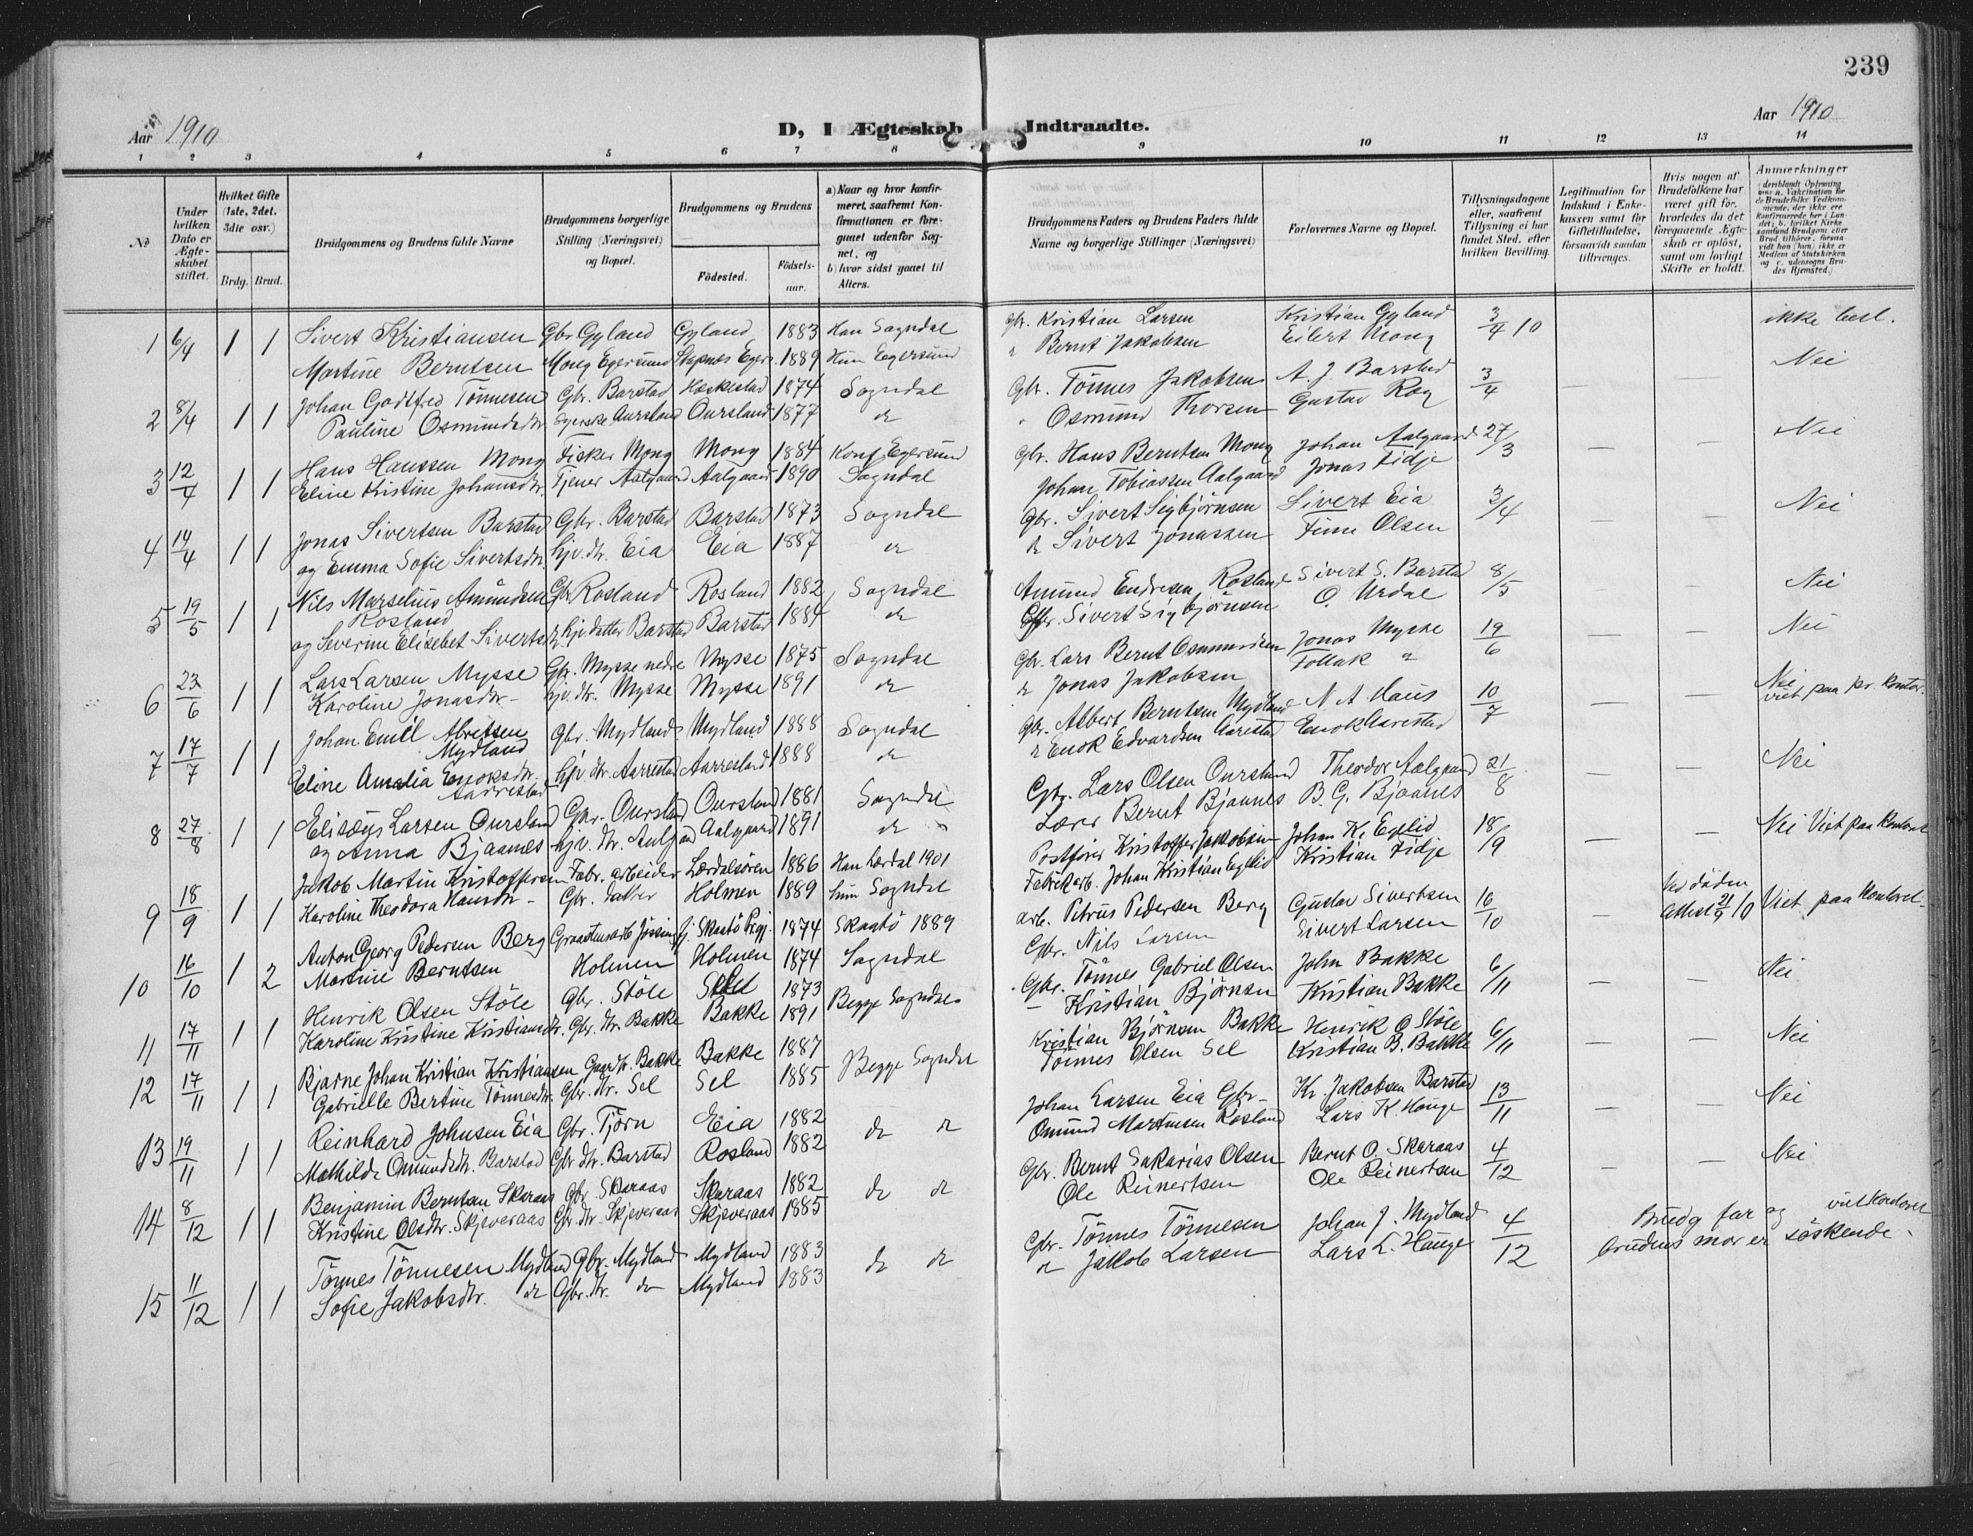 239
Aar 1910
D, I Ægteskab Indtraadte.
Aar 1910
1 2 3 4 5 6 7 8 9 10 11 12 13 14
No
Under hvilken Dato er Ægteskabet stiftet.
Hvilket Gifte (1ste, 2det. 3die osv.)
Brdg. Brud.
Brudgommens og Brudens fulde Navne
Brudgommens borgerlige Stilling (Næringsvei) og Bopæl.
Brudgommens og Brudens
Födested.
Födselsaar.
a) Naar og hvor konfirmeret, saafremt Konfirmationen er foregaaet udenfor Sognet, og
b) hvor sidst gaaet til Alters.
Brudgommens Faders og Brudens Faders fulde Navne og borgerlige Stillinger (Næringsvei)
Forlovernes Navne og Bopæl.
Tillysningsdagene eller, saafremt Tillysning ei har fundet Sted, efter hvilken Bevilling.
Legitimation for Indskud i Enkekassen samt for Giftetilladelse, forsaavidt saadan tiltrænges.
Hvis nogen af Brudefolkene har været gift för, hvorledes da det foregaaende Ægteskab er oplöst, samt om lovligt Skifte er holdt.
Anmærkninger
1 6/4 1 1 Sivert Kristiansen Gbr Gyland Gyland 1883 Han Sogndal Gbr. Kristian Larsen Kristian Gyland 3/4 10 ikke besl.
Martine Berntsen Mong Egersund Stapnes Eger. 1889 Hun Egersund Bernt Jakobsen Eilert Mong
2 8/4 1 1 Johan Godtfred Tönnesen Gbr. Barstad Heskestad 1874 Sogndal Gbr. Tönnes Jakobsen A J Barstad 3/4 — Nei
Pauline Osmundsdtr Oursland 1877 do Osmund Thorsen Gustav Rog
3 12/4 1 1 Hans Hanssen Mong Fisker Mong Mong 1884 Konf Egersund Gbr. Hans Berntsen Mong Johan Aalgaard 27/3 — — Nei
Eline Kristine Johansdtr. Tjener Aalgaard Aalgaard 1890 Sogndal Johan Tobiassen Aalgaard Jonas Tidje
4 14/4 1 1 Jonas Sivertsen Barstad Gbr. Barstad Barstad 1873 Sogndal Gbr. Sivert Sigbjörnsen Sivert Eia 3/4 — — Nei
og Emma Sofie Sivertsdtr Hjv. dtr. Eia Eia 1887 do Sivert Jonassen Finn Olsen
5 19/5 1 1 Nils Marselius Amundsen Rosland Gbr Rosland Rosland 1882 Sogndal Amund Endresen Rosland Sivert S. Barstad 8/5 — — Nei
og Severine Elisebet Siverts Hjv datter Barstad Barstad 1884 do Gbr. Sivert Sigbjörnsen O. Urdal
6 23/6 1 1 Lars Larsen Mysse Gbr. Mysse nedre Mysse 1875 Sogndal Gbr. Lars Bernt Osmundsen Jonas Mysse 19/6 — — Nei
Karoline Jonasdtr. Hjv. dtr. Mysse Mysse 1891 do Jonas Jakobsen Tollak "
7 17/7 1 1 Johan Emil Abretsen Mydland Gbr. Mydland Mydland 1888 Sogndal Gbr. Albert Berntsen Mydland N A Haus 10/7 — — Nei viet paa pr. kontor.
Eline Amalia Enoksdtr. Aarrestad Hjv. dtr. Aarrestad Aarrestad 1888 do Enok Edvardsen Aarestad Enok Aarestad
8 27/8 1 1 Elisæus Larsen Oursland Gbr. Oursland Oursland 1881 Sogndal Gbr. Lars Olsen Oursland Theodor Aalgaard 21/8 — — Nei
og Anna Bjaanes Hjv. dtr. Aalgaard Aalgaard 1891 do Lærer Bernt Bjaanes B. G. Bjaanes
9 18/9 1 1 Jakob Martin Kristoffersen Fabr. arbeider Lærdalsören 1886 Han Lærdal 1901 Postförer Kristoffer Jakobsen Johan K. Eglid 18/9 — — Nei Viet paa kontoret
Karoline Theodora Hansdtr Gbr. datter Holmen 1889 hun Sogndal Fabrikarb. Johan Kristian Eglid Kristian Tidje
10 16/10 1 2 Anton Georg Pedersen Berg Skaatö Prgj. 1874 Skaatö 1889 arb. Petrus Pedersen Berg Gustav Sivertsen 16/10 — Ved döden attest 21/9 10 Viet paa kontoret
Martine Berntsen Holmen Holmen 1874 Sogndal Gbr. Nils Larsen Sivert Larsen
11 17/11 1 1 Henrik Olsen Stöle Gbr. Stöle 1873 Begge Sogndal Gbr. Tönnes Gabriel Olsen John Bakke 6/11 — — Nei
Karoline Kristine Kristiansdtr. Gbr. dtr. Bakke Bakke 1891 Kristian Björnsen Kristian Bakke
12 17/11 1 1 Bjarne Johan Kristian Kristiansen Gaardbr. Bakke Bakke 1887 Begge Sogndal Kristian Björnsen Bakke Henrik O Stöle 6/11 — — Nei
Gabrielle Bertine Tönnesdtr. Gbr. dtr. Sel Sel 1885 Tönnes Olsen Sel Kristian B. Bakke
13 19/11 1 1 Reinhard Johnsen Eia Gbr. Tjörn Eia 1882 do do Johan Larsen Eia Gbr. Kr Jakobsen Barstad 13/11 — — Nei
Mathilde Omundsdtr. Barstad Gbr dtr. Barstad Rosland 1882 Omund Martinsen Rosland Lars K Hauge
14 8/12 1 1 Benjamin Berntsen Skaraas Gbr. Skaraas Skaraas 1882 do do Gbr. Bernt Sakarias Olsen Bernt O. Skaraas 4/12 — — Nei
Kristine Olsdtr. Skjeveraas Gbr. dtr. Skjeveraas Skjeveraas 1885 Ole Reinertsen Ole Reinertsen
15 11/12 1 1 Tönnes Tönnesen Mydland Gbr. Mydland Mydland 1883 do do Gbr. Tönnes Tönnesen Johan J. Mydland 4/12 Brudg far og brudens mor er söskende. viet kontoret
Sofie Jakobsdtr. do Gbr. dtr. do Mydland 1883 do Jakob Larsen Lars L. Hauge